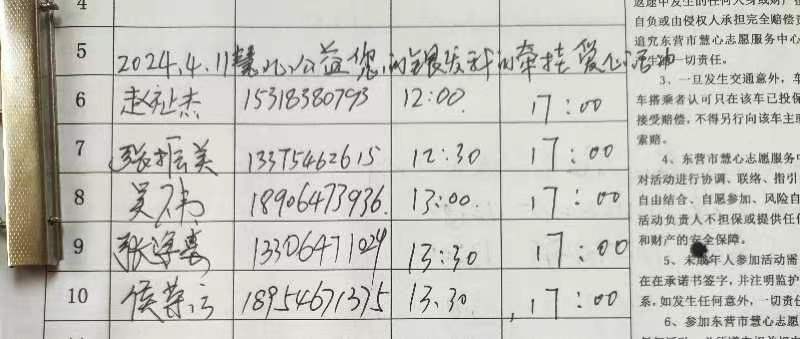 4
5 2024.4.11慧心公益您的银发我的牵挂爱心活动
6 赵祉杰 15318380793 12:00 17:00
7 张振美 13375462615 12:30 17:00
8 吴伟 18906473936 13:00 17:00
9 张 13306471029 13:30 17:00
10 侯 18954671375 13:30 17:00
返途中发生的任何人身或财产
自负或由侵权人承担完全赔偿责
追究东营市慧心志愿服务中心
一切责任。
3、一旦发生交通意外,车
车搭乘者认可只在该车已投保
接受赔偿,不得另行向该车主
索赔。
4、东营市慧心志愿服务中
对活动进行协调、联络、指引
自由结合、自愿参加、风险自
活动负责人不担保或提供任
和财产的安全保障。
5、未成年人参加活动需
在在承诺书签字,并注明监护
系,如发生任何意外,一切责任
6、参加东营市慧心志愿